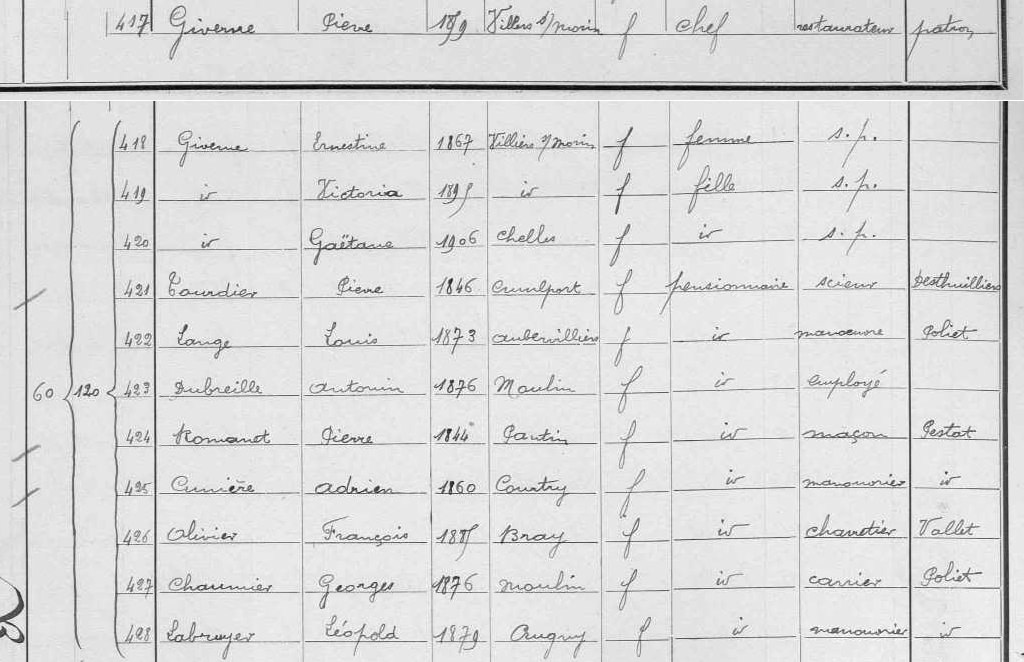 417 Giverne Pierre 1859 Villiers s/morin f chef restaurateur patron
418 Giverne Ernestine 1867 Villiers s/morin f femme s. p.
419 id Victoria 1895 id f fille s. p.
420 id Gaëtane 1906 Chelles f id s. p.
421 Tourdier Pierre 1846 f pensionnaire scieur Desthuilliers
422 Lange Louis 1873 aubervilliers f id manoeuvre Poliet
60 120 423 Dubreille antonin 1876 Moulin f id employé
424 Romanet Pierre 1844 Pantin f id maçon Pestat
425 Cunière adrien 1860 Courtry f id manouvrier id
426 Olivier François 1885 Bray f id charretier Vallet
427 Chaumier Georges 1876 moulin f id carrier Poliet
428 Labruyer Léópold 1879 Augny f id manouvrier id